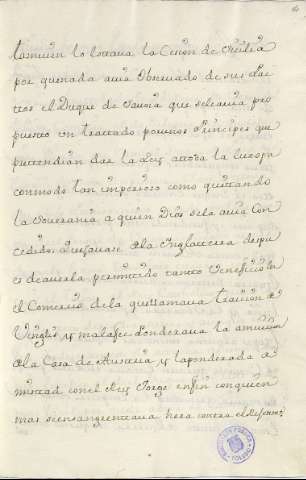 6
tambien lo tocava la Cesion de Sicilia
por quenada avia Observado de sus Pac
tos el Duque de Savoia que seleavia pro
puesto un trattado por unos Principes que
pretendian dar la Ley attoda la Europa
con modo tan imperioso como quittando
la Soverania a quien Dios sela avia con
cedido; quexavase de la Inglatterra despu
es de averla permittido tantos Veneficios
el Comercio de la que llamava traicion de
y malafee ponderava la
a la Casa de Austria y la ponderada a
mistad con el Rey Jorge enfin con quien
mas se ensangrentava hera contra el